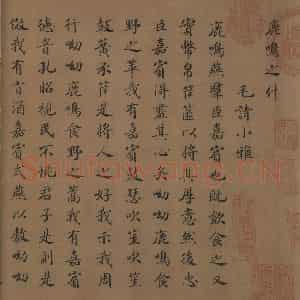 鹿鳴之什
毛詩小雅
鹿鳴燕羣臣嘉賓也既飲食之又
實幣帛筐篚以將其厚意然後忠
臣嘉賓得盡其心矣呦呦鹿鳴食
野之苹我有嘉賓鼓瑟吹笙吹笙
鼓簧承筐是將人之好我示我周
行呦呦鹿鳴食野之蒿我有嘉賓
德音孔昭視民不恌君子是則是
傚我有旨酒嘉賓式燕以敖呦呦